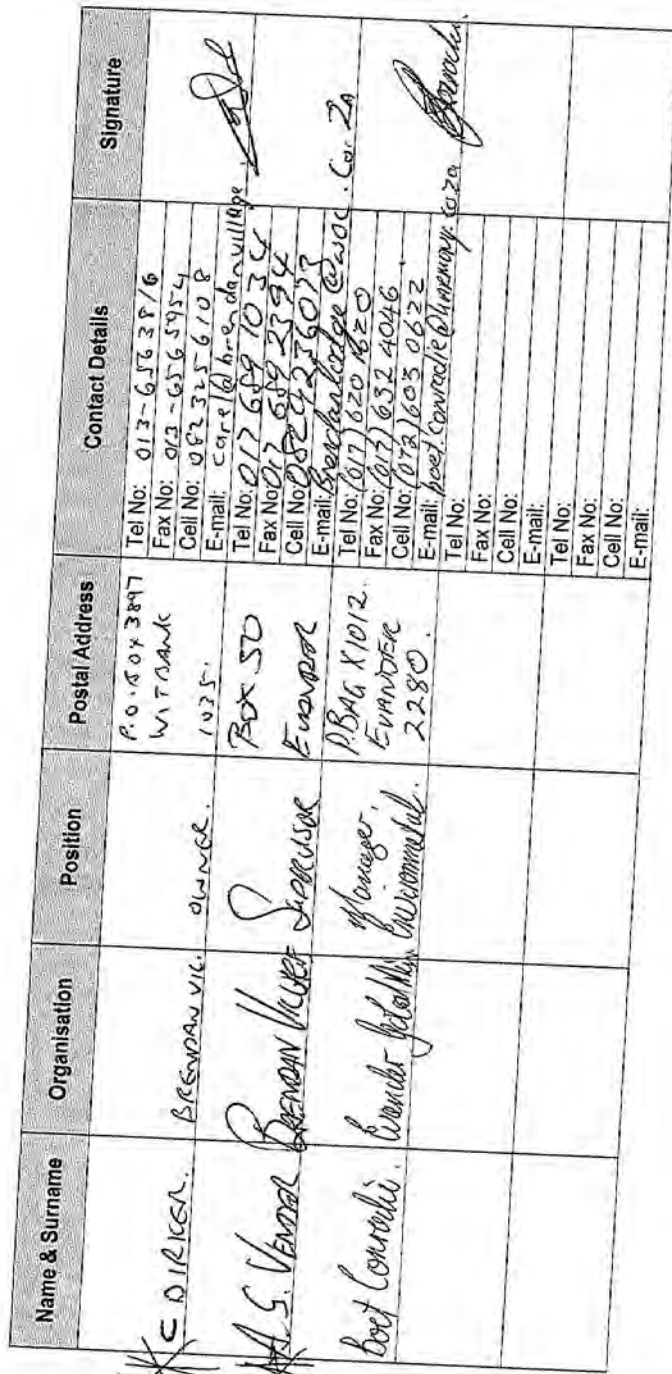 Name & Surname
Organisation
Position
Postal Address
Contact Details
Signature
C DIRKER.
BRENDAN VIL.
OWNER.
P.O. BOX 3897
WITBANK
1035.
Tel No: 013-6563816
Fax No: 013-6565954
Cell No: 082 325 6108
E-mail: carel@brendanvillage.
A. S. VENTER
BRENDAN VILLAGE
SUPERVISOR
BOX 50
EVANDER
Tel No: 017 689 1034
Fax No: 017 689 2394
Cell No: 0824236073
E-mail: Brendanlodge@ . Co. ZA
Boet Conradie.
Evander
Manager.
Environmental.
P.BAG X1012.
EVANDER
2280.
Tel No: (017) 620 1620
Fax No: (017) 632 4046
Cell No: (072) 603 0622
E-mail: boet.conradie@harmony.co.za
Tel No:
Fax No:
Cell No:
E-mail:
Tel No:
Fax No:
Cell No:
E-mail: